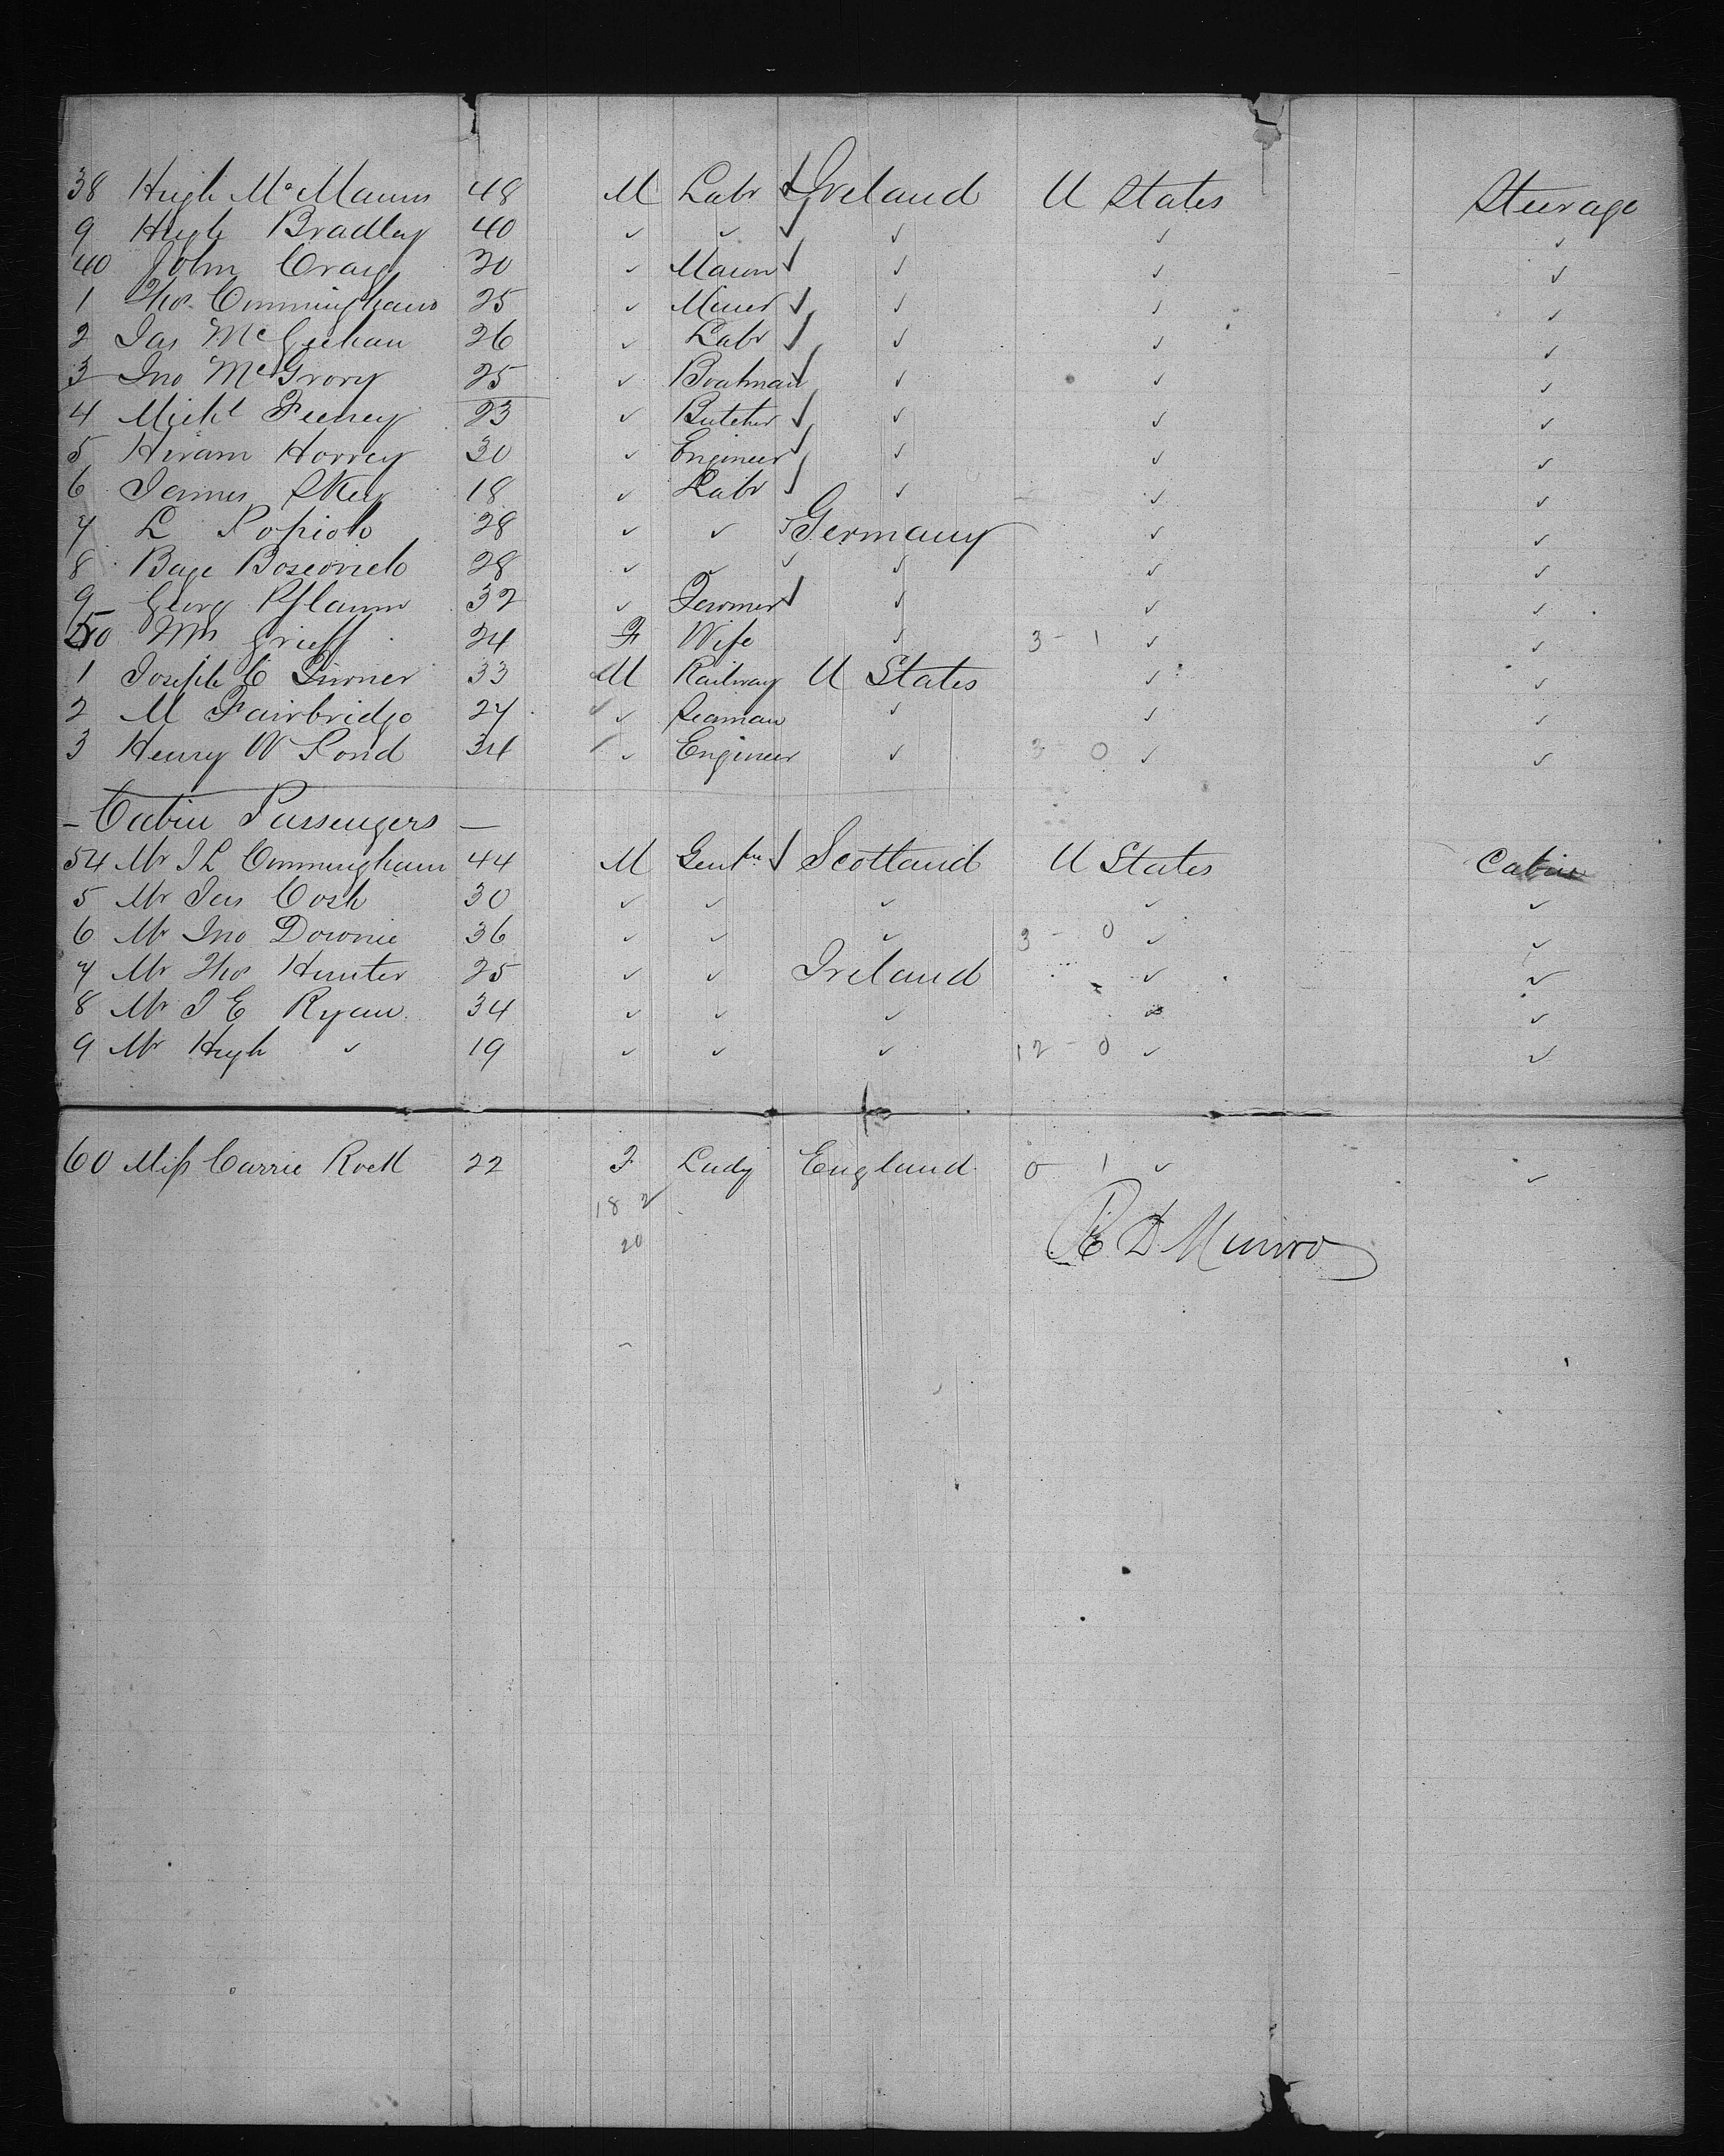 38 Hugh McManus 48 M Labr Ireland U States Steerage
9 Hugh Bradley 40 ✓ ✓ ✓ ✓ ✓
40 John Craig 30 ✓ Mason ✓ ✓ ✓
1 Thos Cunningham 25 ✓ Miner ✓ ✓ ✓
2 Jas McGeehan 26 ✓ Labr ✓ ✓ ✓
3 Jno McGrory 25 ✓ Boatman ✓ ✓ ✓
4 Michl Feeney 23 ✓ Butcher ✓ ✓ ✓
5 Hiram Horrey 30 ✓ Engineer ✓ ✓ ✓
6 James Skey 18 ✓ Labr ✓ ✓ ✓
7 L 28 ✓ ✓ Germany ✓ ✓
8 28 ✓ ✓ ✓ ✓ ✓
9 Georg Pflaum 32 ✓ Farmer ✓ ✓ ✓
50 Mrs Grieff 24 F Wife ✓ 3 - 1 ✓ ✓
1 Joseph C Turner 33 M Railway U States ✓ ✓
2 M Fairbridge 27 ✓ Seaman ✓ ✓ ✓
3 Henry W Pond 34 ✓ Engineer ✓ 3 - 0 ✓ ✓
- Cabin Passengers -
54 Mr J L Cunningham 44 M Gentn Scotland U States Cabin
5 Mr Jas Cosh 30 ✓ ✓ ✓ ✓ ✓
6 Mr Jno Downie 36 ✓ ✓ ✓ 3 - 0 ✓ ✓
7 Mr Thos Hunter 25 ✓ ✓ Ireland ✓ ✓
8 Mr J E Ryan 34 ✓ ✓ ✓ ✓ ✓
9 Mr Hugh ✓ 19 ✓ ✓ ✓ 12 - 0 ✓ ✓
60 Miss Carrie Roell 22 F Lady England 0 1 ✓ ✓
18 2
20
R D Munro